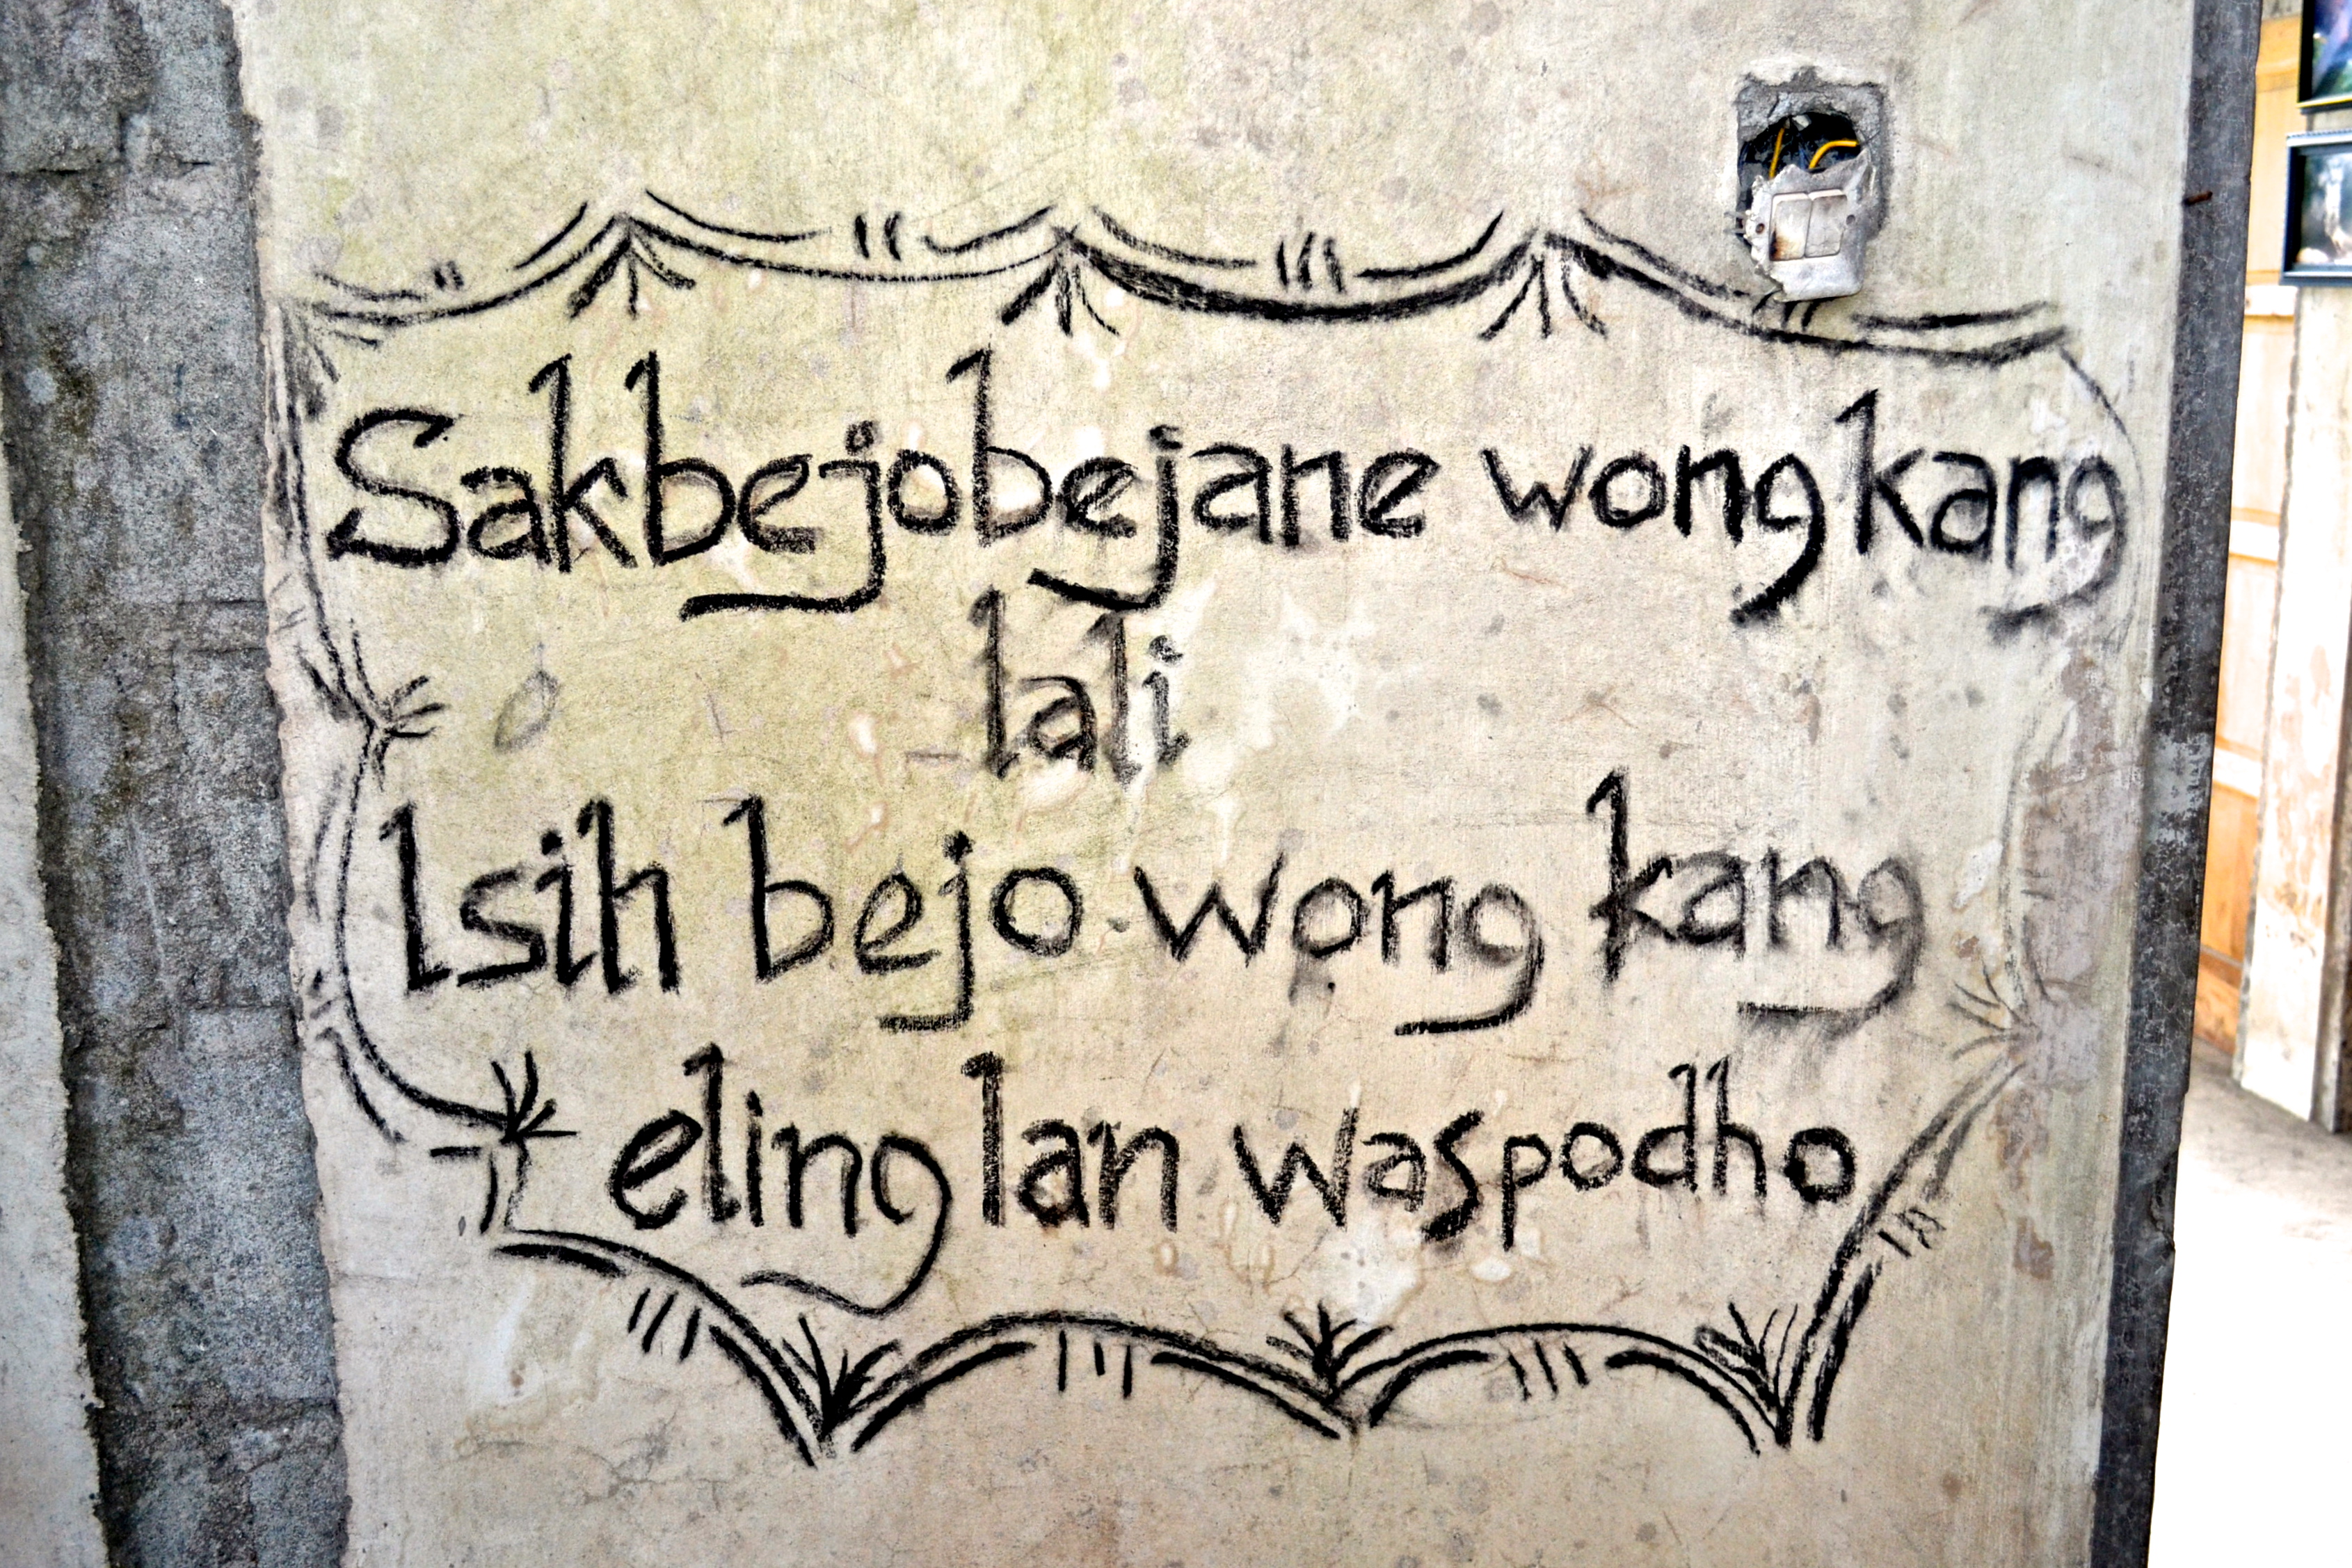 Sakbejobejane wong kang
lali
Isih bejo wong kang
eling lan waspodho